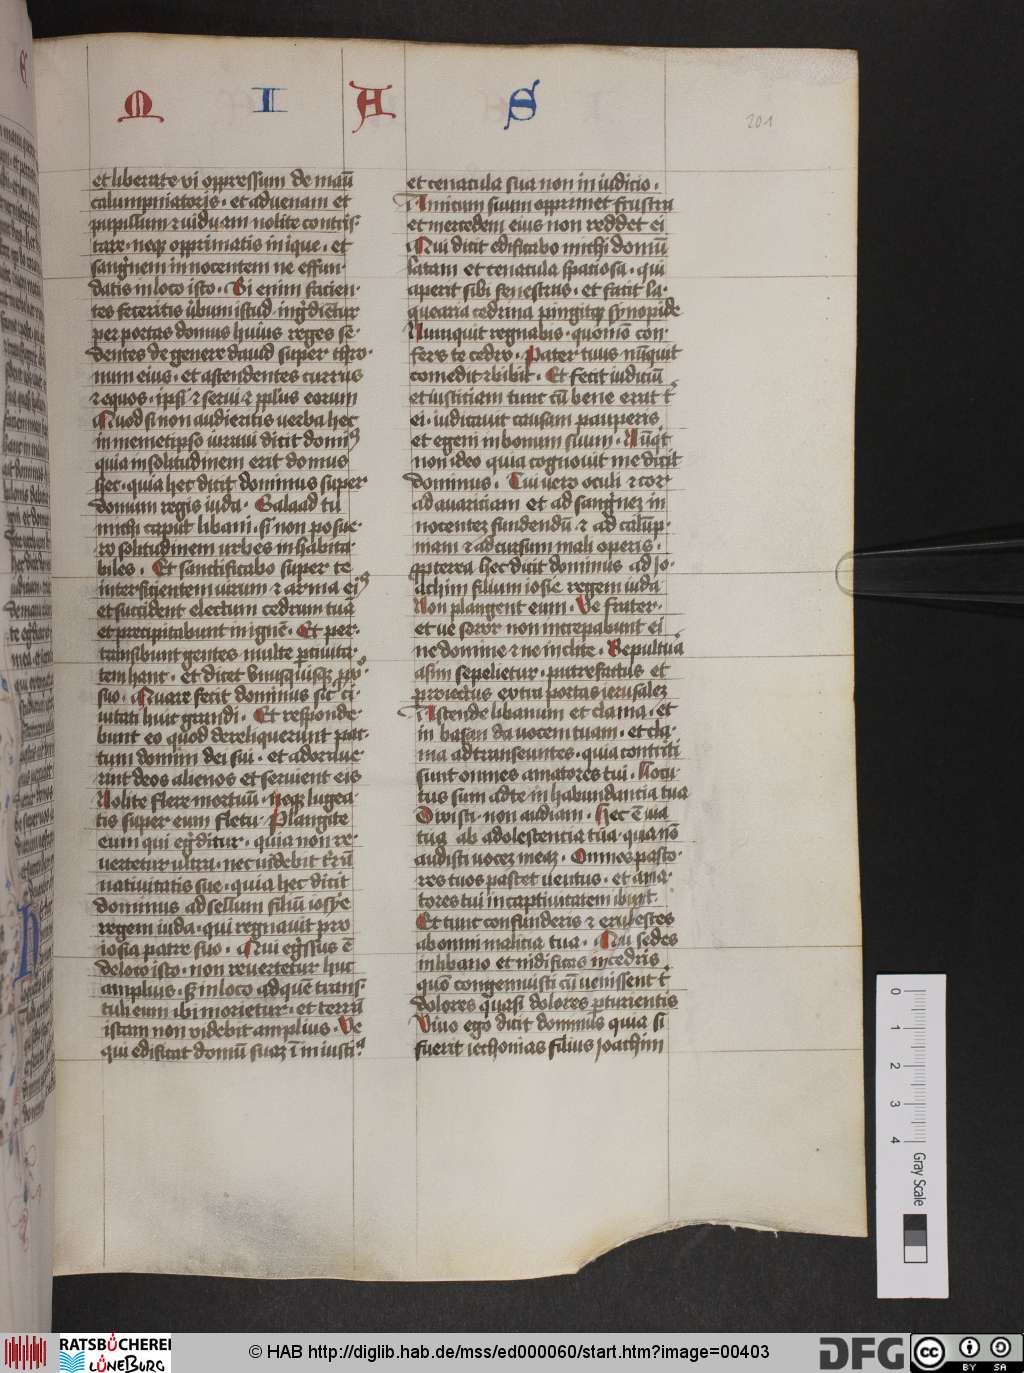 M I A S
201
et liberate vi oppressum de manū
calumpniatoris · et advenam et
pupillum ⁊ viduam nolite contris
tare · neqꝫ opprimatis inique · et
sangwnem innocentem ne effun·
datis in loco isto · Si enim facien·
tes feceritis ūbum istud ingͥdient͛
per portas domus huius reges se·
dentes de genere david super thro·
num eius · et ascendentes currus
⁊ equos · ipsi ⁊ servi ⁊ ppl̄us eorum
Quod si non audieritis verba hec
in memetipso iuravi dicit dominꝰ
quia in solitudinem erit domus
hec · quia hec dicit dominus super
domum regis iuda · Galaad tu
michi caput libani · si non posue·
ro solitudinem urbes inhabita·
biles · Et sanctificabo super te
interficientem virum ⁊ arma eiꝰ
et succident electam cedrum tuā
et precipitabunt in ignē · Et per·
transibunt gentes multe ꝑ civita·
tem hanc · et dicet vnusquisqꝫ ꝓxͦ
suo · Quare fecit dominus sic ci·
vitati huic grandi · Et responde·
bunt eo quod dereliquerunt pac·
tum domini dei sui · et adorave·
runt deos alienos et servient eis
Nolite flere mortuū · neqꝫ lugea·
tis super eum fletu · Plangite
eum qui egͥditur · quia non re·
vertetur ultra · nec videbit t͛rā
nativitatis sue · quia hec dicit
dominus ad sellum filiū iosye
regem iuda · qui regnavit pro
iosia patre suo · Qui egͥssus ē
de loco isto · non revertetur huc
amplius · sꝫ in loco ad quē trans·
tuli eum ibi morietur · et terrā
istam non videbit amplius · Ve
qui edificat domū suaꝫ ī iniusti·ᵃ
et cenacula sua non in iudicio ·
Amicum suum opprimet frustra
et mercedem eius non reddet ei
Qui dicit edificabo michi domū
latam et cenacula spaciosa · qui
aperit sibi fenestras · et facit la·
quearia cedrina pingitqꝫ synopide
Nunquit regnabis · quoniā con·
fers te cedro · Pater tuus nūquit
comedit ⁊ bibit · Et fecit iudiciū
et iusticiam tunc cū bene erat t͛
ei · iudicavit causam pauperis
et egeni in bonum suum · Nūqͥt
non ideo quia cognovit me dicit
dominus · Tui vero oculi ⁊ cor
ad avariciam et ad sangͥneꝫ in
nocenteꝫ fundendū ⁊ ad calūp·
niam ⁊ ad cursum mali operis ·
ꝓpterea hec dicit dominus ad jo·
achim filium iosie regem iuda
Non plangent eum · Ve frater ·
et ve soror non increpabunt ei
ne domine ⁊ ne inclite · Sepultuᵃ
asini sepelietur · putrefactus et
proiectus extra portas ierusaleꝫ
Ascende libanum et clama · et
in basan da vocem tuam · et cla·
ma ad transeuntes · quia contriti
sunt omnes amatores tui · Locu·
tus sum ad te in habundancia tua
Dixisti · non audiam · Hec ē via
tua ab adolescencia tua · quia nō
audisti voceꝫ meaꝫ · Omnes pasto·
res tuos pascet ventus · et ama·
tores tui in captivitatem ibunt
Et tunc confunderis ⁊ erubesces
ab omni malicia tua · Qui sedes
in libano et nidificas in cedris
quo congemuisti cū venissent t͛
dolores quasi dolores ꝑturientis
Vivo ego dicit dominus quia si
fuerit iechonias filius joachim
0 1 2 3 4
Gray Scale
RATSBÜCHEREI
LÜNEBURG
© HAB http://diglib.hab.de/mss/ed000060/start.htm?image=00403
DFG
cc BY SA